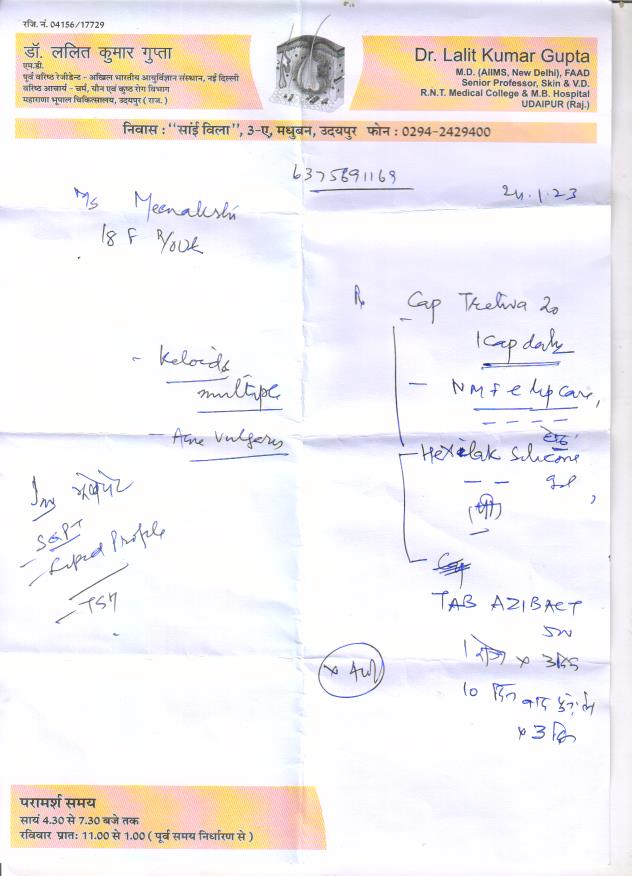 रजि. नं. 04156/17729
डॉ. ललित कुमार गुप्ता
एम.डी.
पूर्व वरिष्ठ रेजीडेन्ट - अखिल भारतीय आयुर्विज्ञान संस्थान, नई दिल्ली
वरिष्ठ आचार्य - चर्म, यौन एवं कुष्ठ रोग विभाग
महाराणा भूपाल चिकित्सालय, उदयपुर ( राज. )
Dr. Lalit Kumar Gupta
M.D. (AIIMS, New Delhi), FAAD
Senior Professor, Skin & V.D.
R.N.T. Medical College & M.B. Hospital
UDAIPUR (Raj.)
निवास : "सांई विला", 3-ए, मधुबन, उदयपुर फोन : 0294-2429400
6375691169
24.1.23
Ms Meenakshi
18 F
Cap Tretiva 20
1 cap daily
- Keloids
multiple
- NMF e lip care,
- Acne vulgaris
- Hexilak Silicone
gel,
Inv
- SGPT
- Lipid Profile
- TSH
Cap
TAB AZIBACT
500
1 रोज x 3 दिन
10 दिन बाद
x 3 दिन
परामर्श समय
सायं 4.30 से 7.30 बजे तक
रविवार प्रातः 11.00 से 1.00 ( पूर्व समय निर्धारण से )